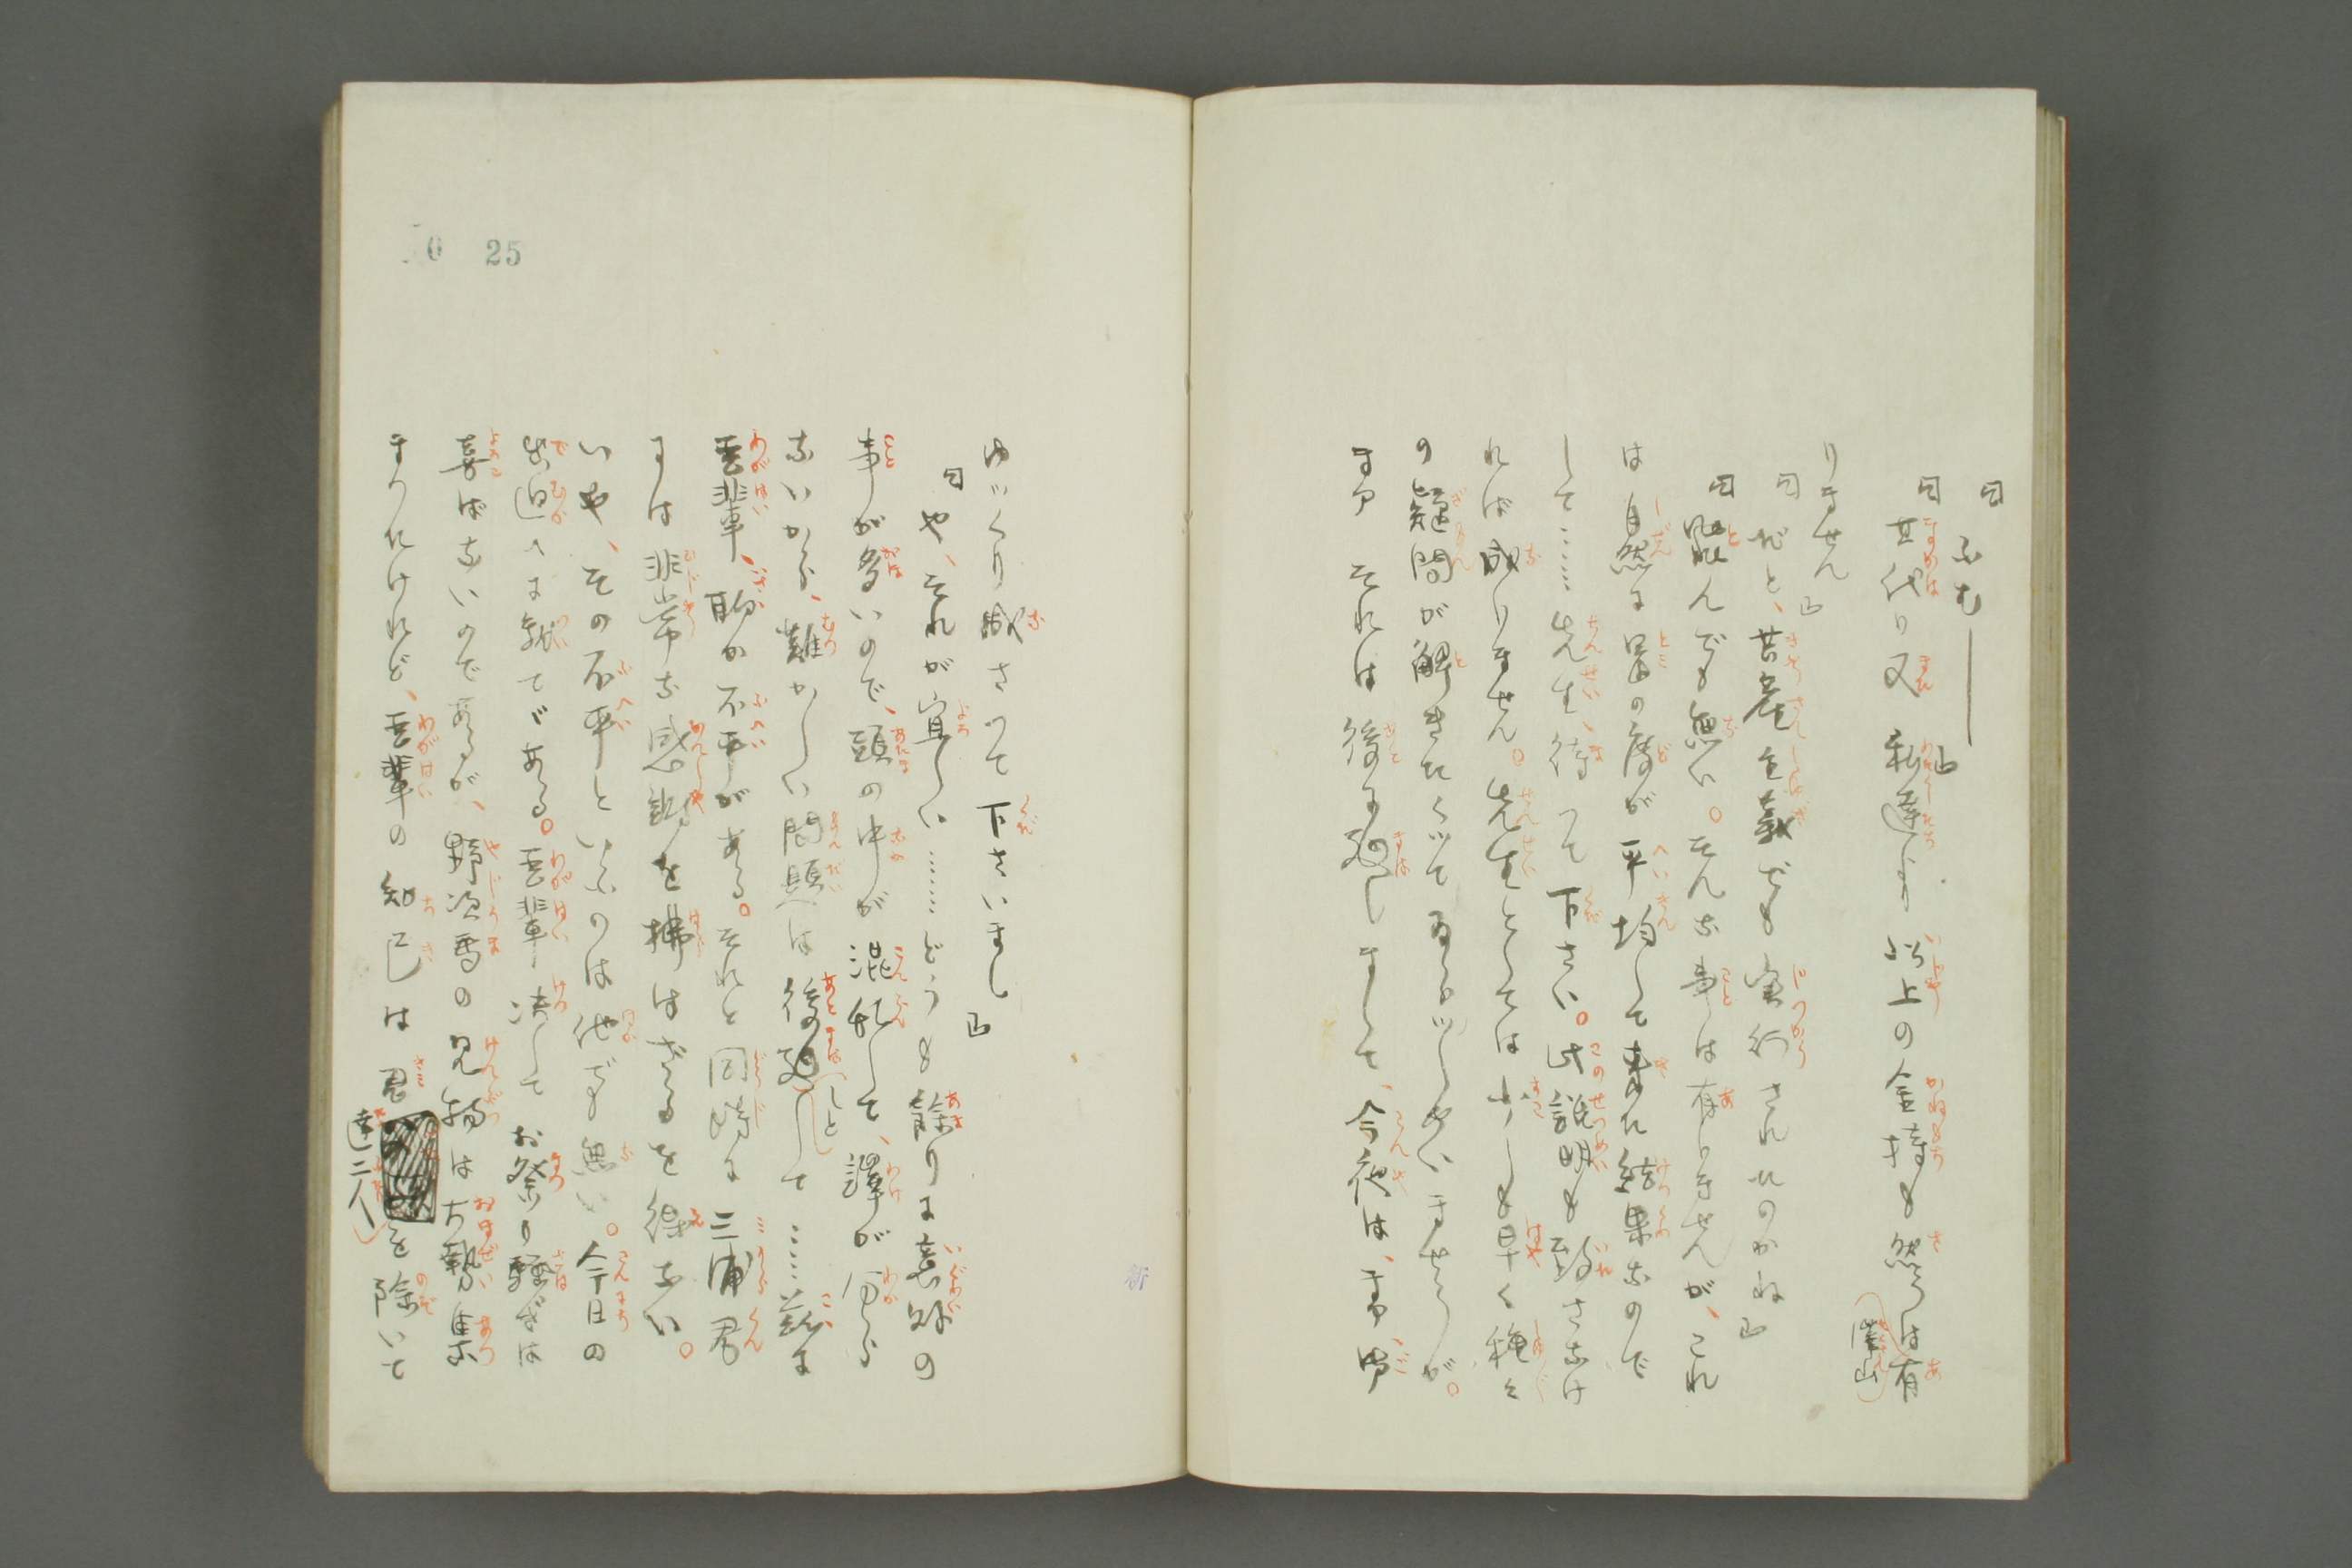 「ふむ――」
「其代り又私達より以上の金持も然うは（澤山）有
りません」
「だと、共産主義でも実行されたのかね」
「飛んでも無い。そんな事は有りませんが、これ
は自然に冨の度が平均して来た結果なので
して……先生、待つて下さい。此説明も致さなけ
れば成りません。先生としては少しも早く種々
の疑問が解きたくッてゐらッしやいませうが。
まア それは後に廻しまして、今夜は、まア御
ゆッくり成さつて下さいまし」
「や、それが宜しい……どうも餘りに意外の
事が多いので、頭の中が混乱して、譯が分ら
ないから、難かしい問題は後廻しと して……茲に
吾輩、聊か不平がある。それと同時に三浦君
には非常な感謝を拂はざるを得ない。
いや、その不平といふのは他でも無い。今日の
出迎へに就てゞある。吾輩決してお祭り騒ぎは
喜ばないのであるが、野次馬の見物は大勢集
まつたけれど、吾輩の知己は君達二人を除いて
25